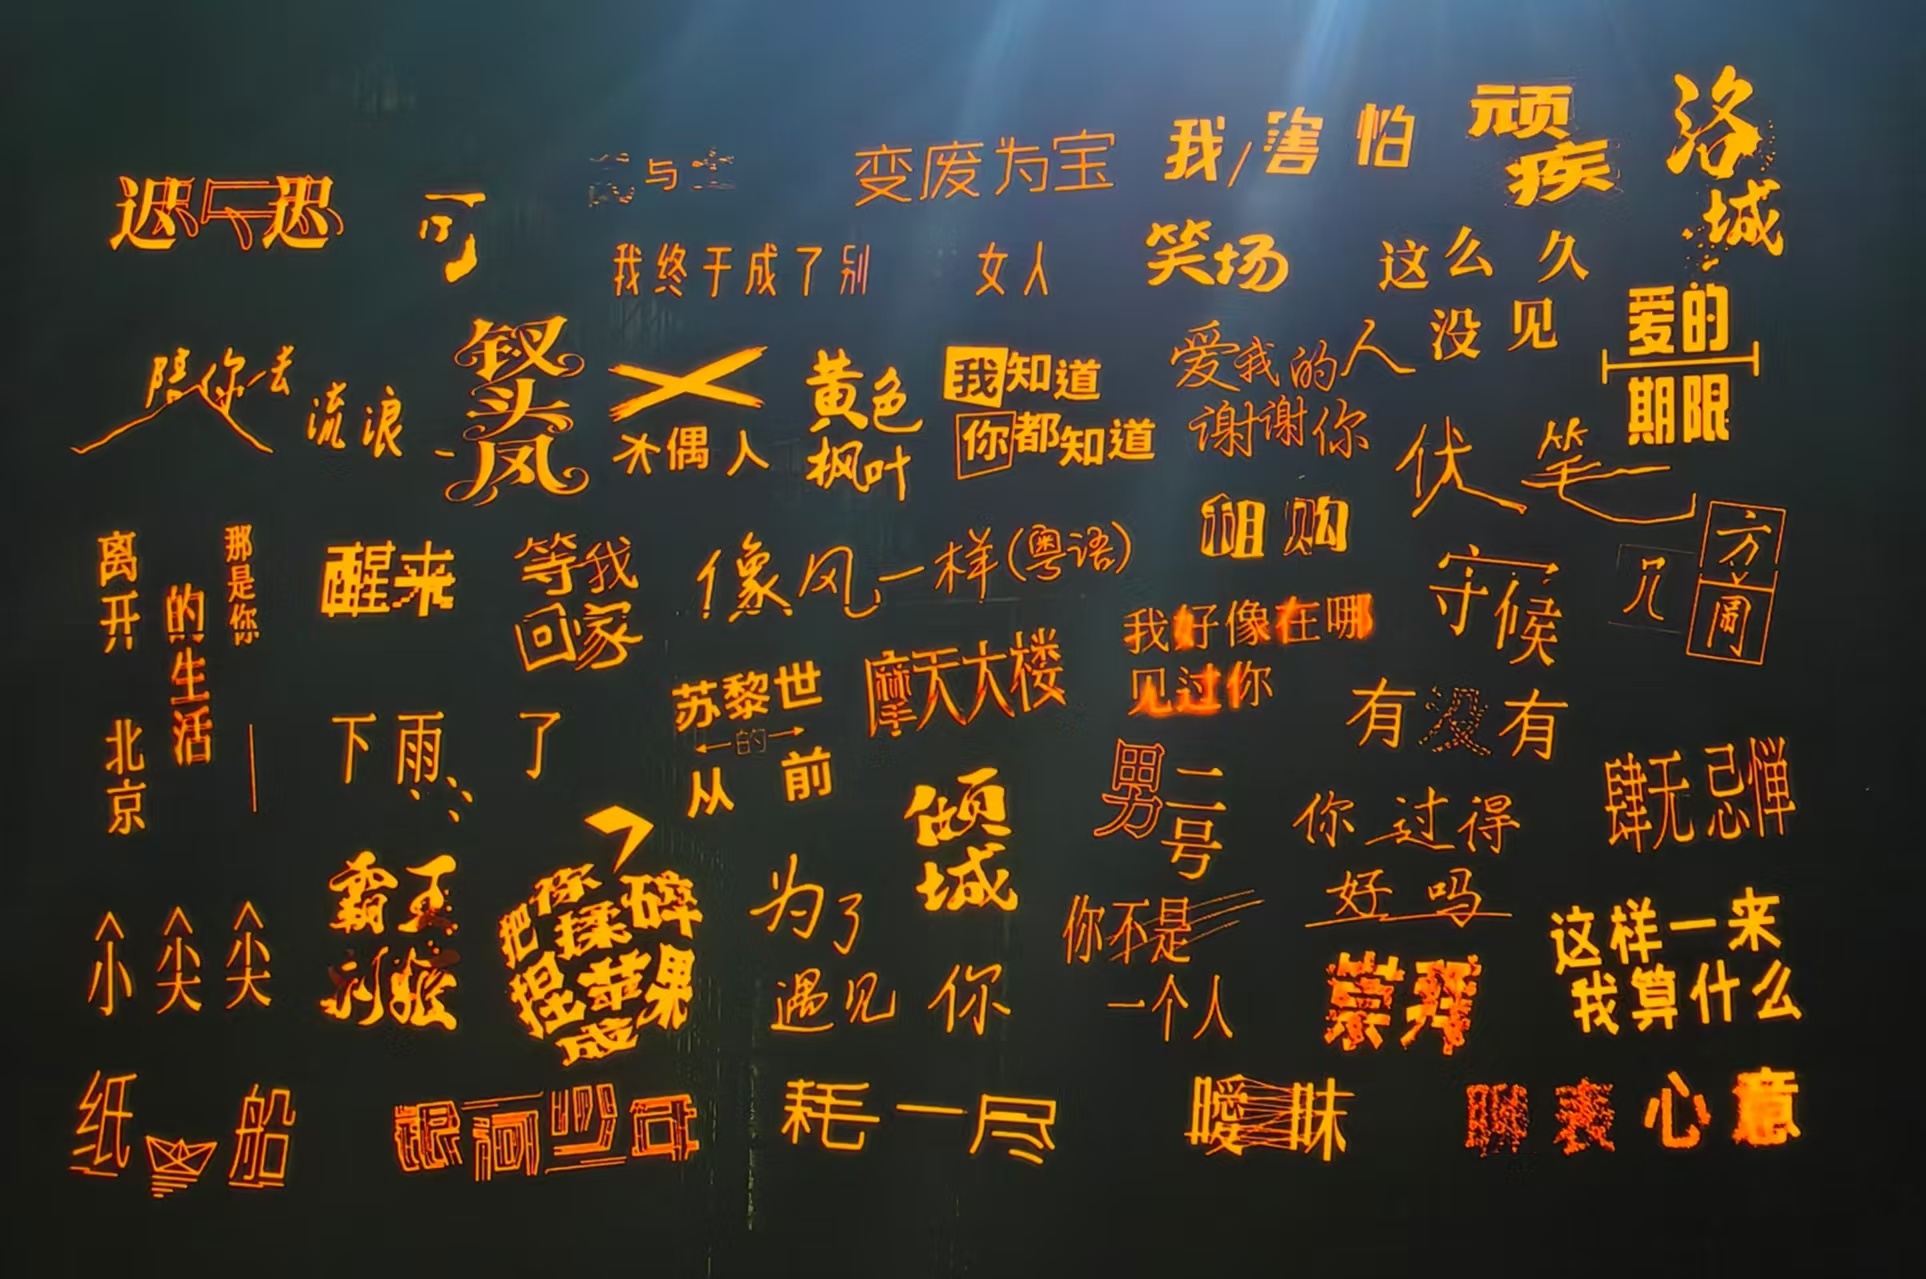 迟一迟
可
与
变废为宝
我/害怕
顽疾
洛城
我终于成了别
女人
笑场
这么久
没见
爱的
期限
陪你去
流浪
钗头凤
木偶人
黄色
枫叶
我知道
你都知道
爱我的人
谢谢你
伏笔
离开
北京
的生活
那是你
醒来
等我
回家
像风一样(粤语)
租购
守候
几
方
我好像在哪
见过你
下雨了
苏黎世
的
从前
摩天大楼
有没有
男二号
你过得
好吗
肆无忌惮
倾城
小尖尖
霸王
把你揉碎
捏苹果
成
为了
遇见你
你不是
一个人
崇拜
这样一来
我算什么
纸船
银河少年
耗一尽
暧昧
聊表心意